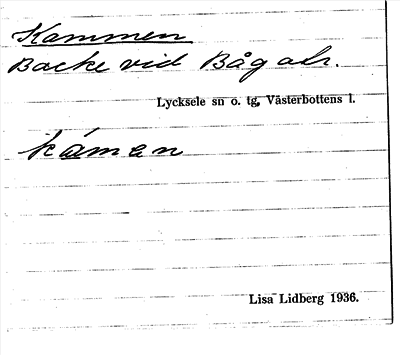 Kammen
Backe vid Båg ålr.
Lycksele sn o. tg, Västerbottens l.
kámen
Lisa Lidberg 1936.